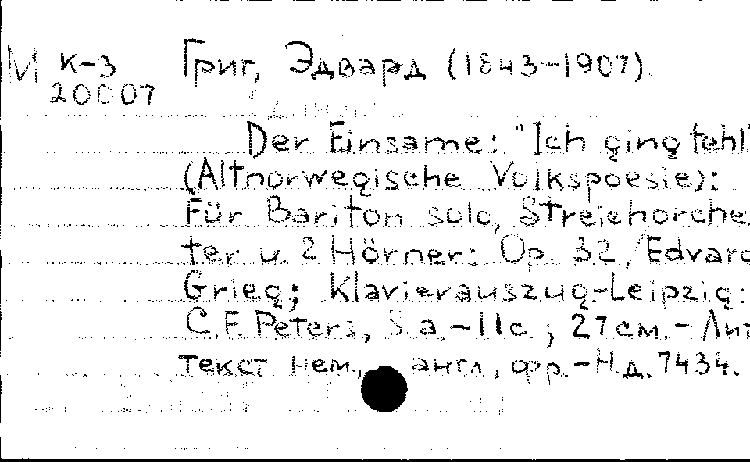 М К-3 Григ, Эдвард (1843-1907).
20007
Der Einsame: "Ich ging fehl"
(Altnorwegische Volkspoesie):
Für Bariton solo, Streichorches
ter u. 2 Hörner: Op. 32 / Edvard
Grieg; Klavierauszug.-Leipzig:
C.F. Peters, S.a.-11с.; 27см.-Лит.
текст нем., англ., фр.-Н.д.7434.